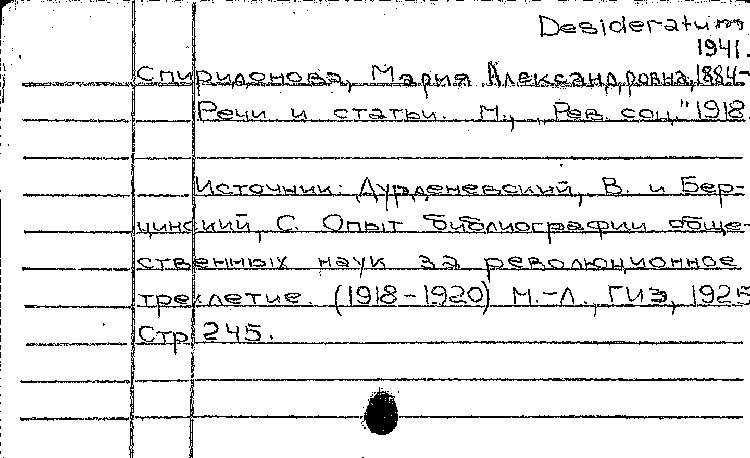 Desideratum
1941.
Спиридонова, Мария Александровна, 1884-
Речи и статьи. М., „Рев. соц." 1918.
Источник: Дурденевский, В. и Бер-
цинский, С. Опыт библиографии обще-
ственных наук за революционное
трехлетие. (1918-1920) М.-Л., ГИЗ, 1925
Стр. 245.